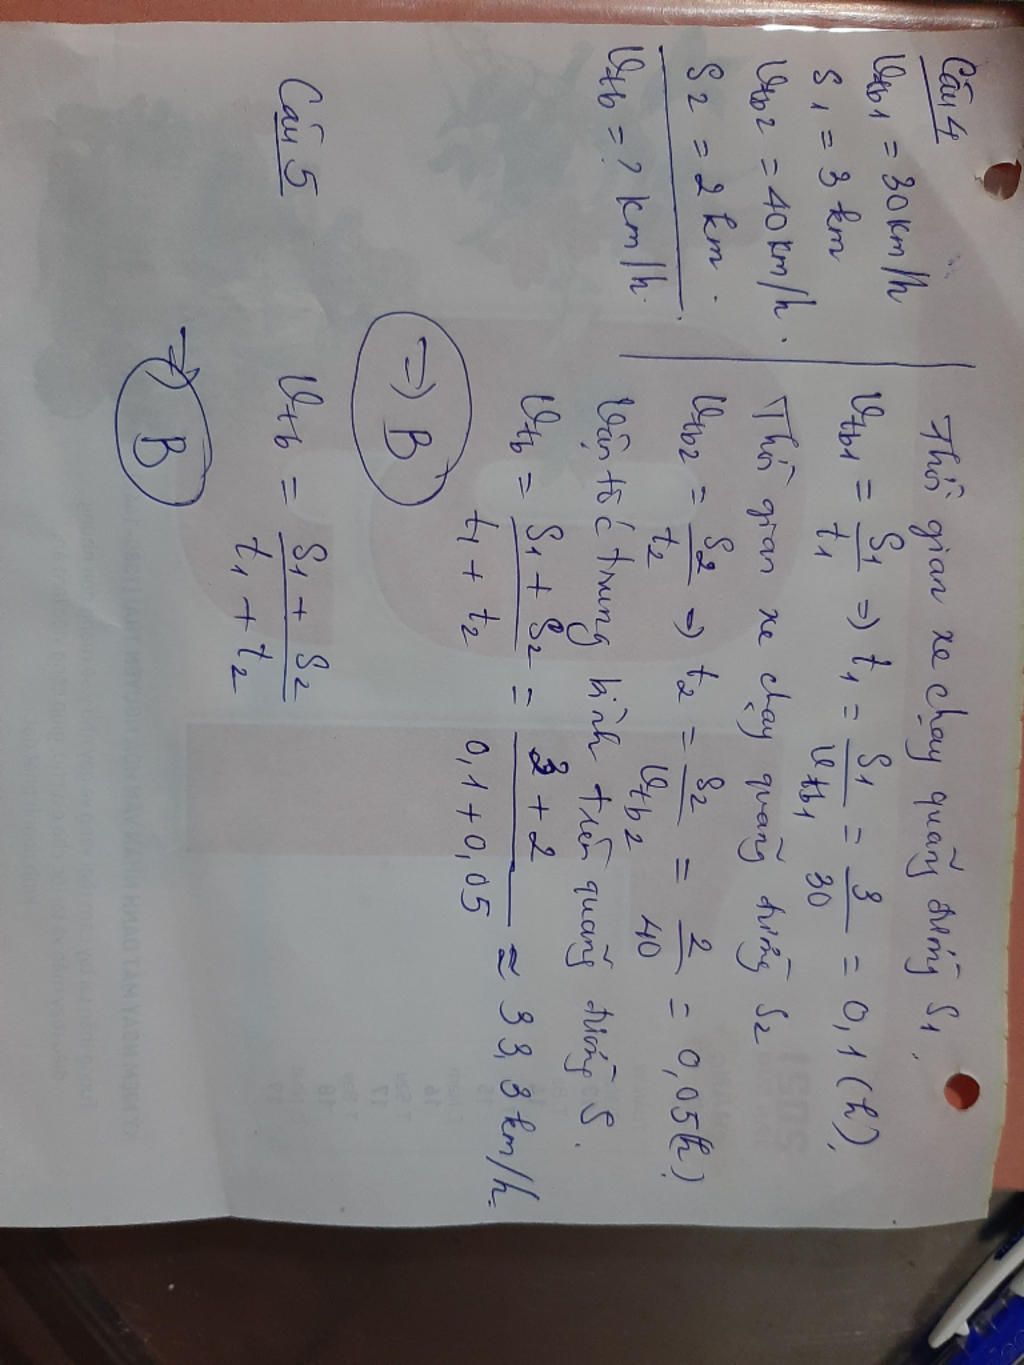 Câu 4
Vtb1 = 30km/h
S1 = 3 km
Vtb2 = 40km/h.
S2 = 2 km.
Vtb = ? km/h.
Thời gian xe chạy quãng đường S1.
Vtb1 = S1/t1 => t1 = S1/Vtb1 = 3/30 = 0,1 (h).
Thời gian xe chạy quãng đường S2
Vtb2 = S2/t2 => t2 = S2/Vtb2 = 2/40 = 0,05(h)
Vận tốc trung bình trên quãng đường S.
Vtb = S1 + S2/t1 + t2 = 3 + 2/0,1 + 0,05 ≈ 33,3km/h.
=> B
Câu 5
Vtb = S1 + S2/t1 + t2
=> B